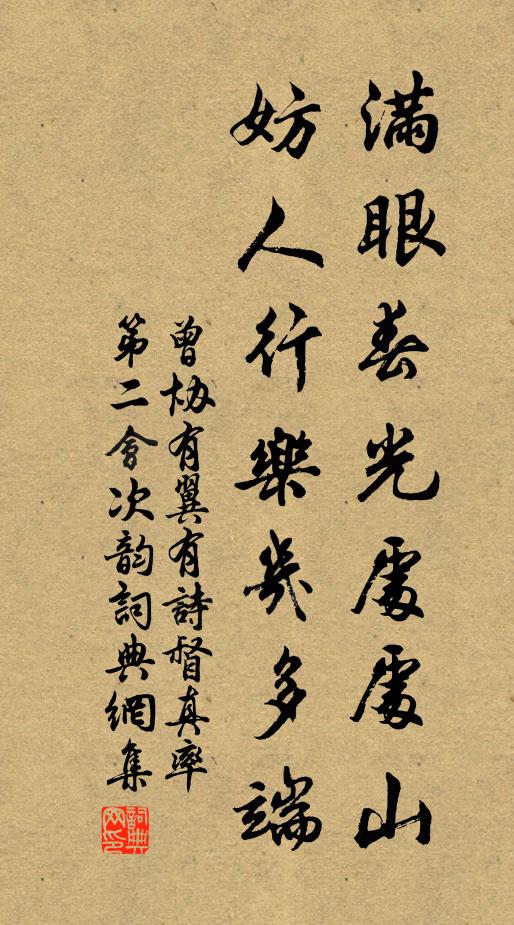 滿眼春光處處山
妨人行樂幾多端
曾协有翼有詩督真率
第二會次韵詞典網集
詞典网印